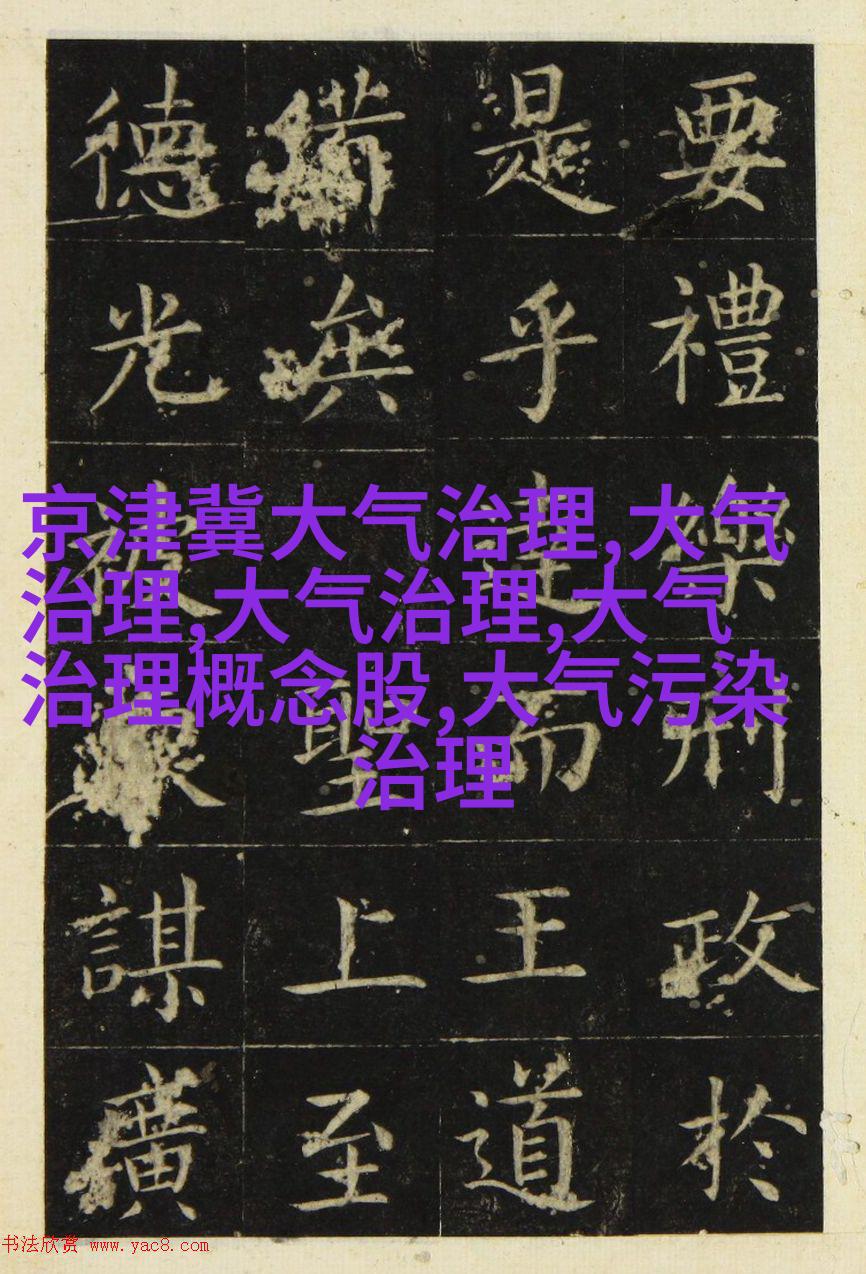 要禮樂刑政於
是乎而王道
聖上至
德光被謀廣
京津冀大气治理,大气
治理,大气治理,大气
治理概念股,大气污染
治理
书法欣赏 www.yac8.com